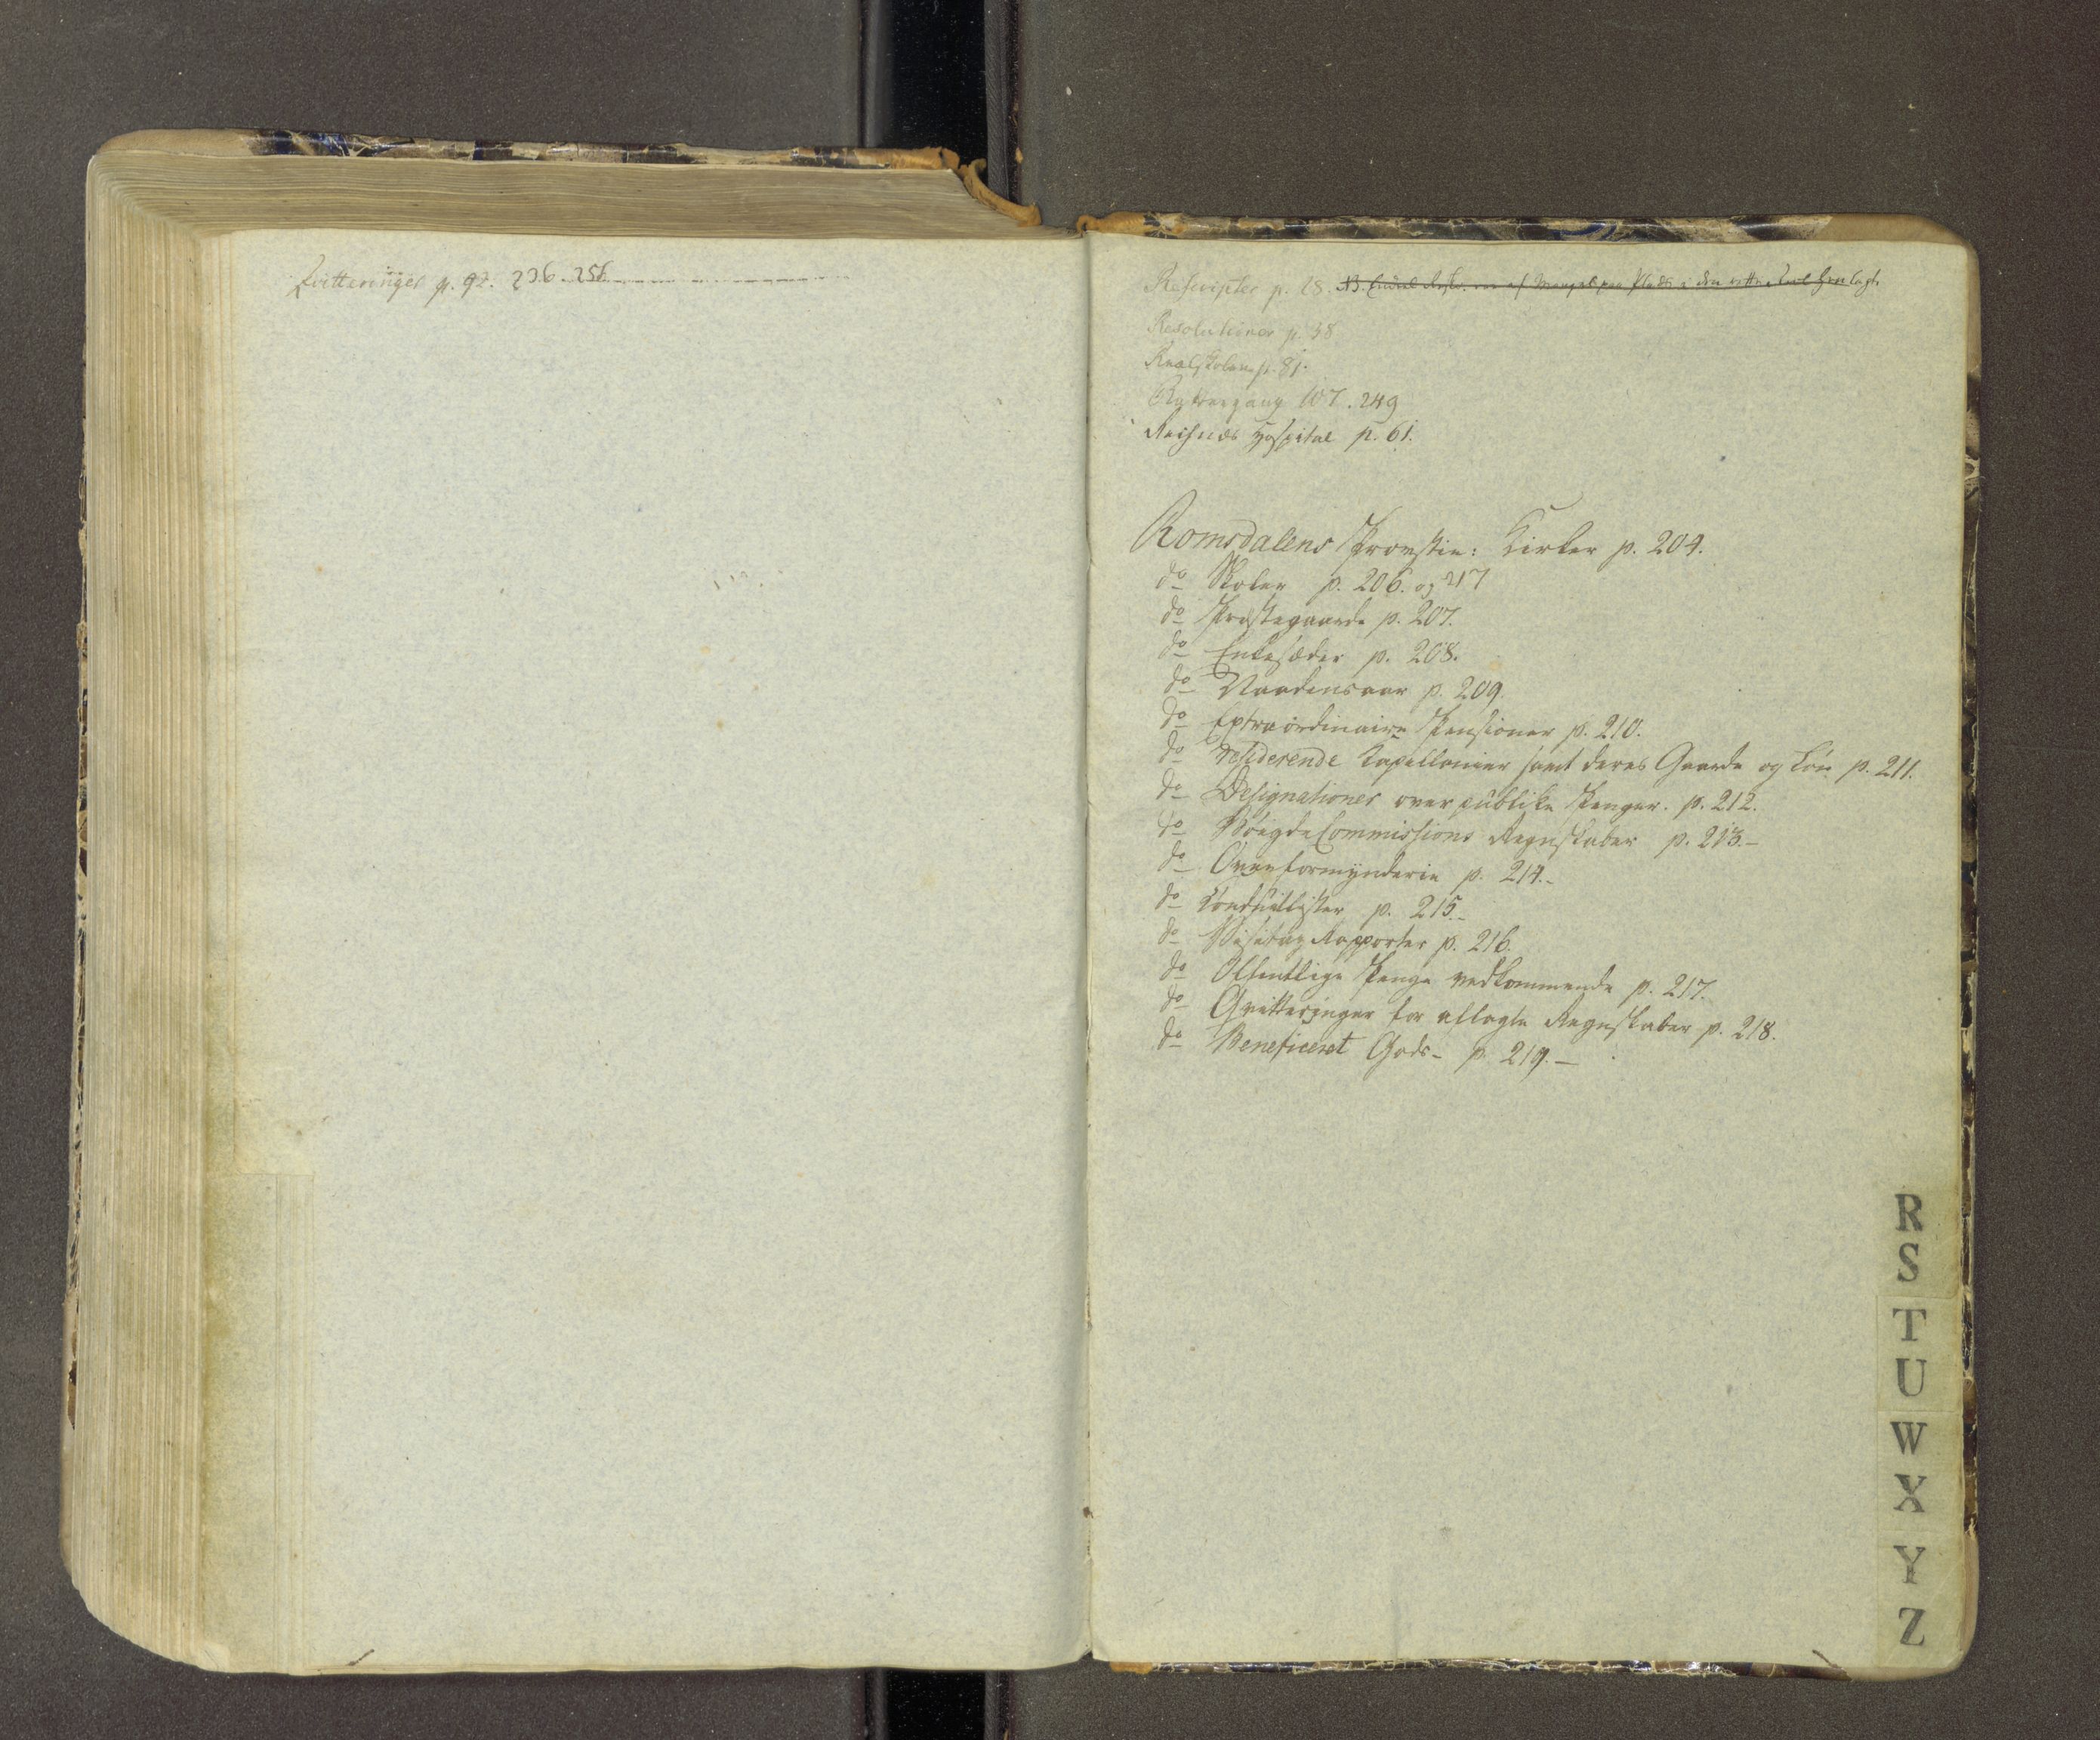 Qvitteringer p. 92. 236. 256
Rescripter p. 28. NB. af Mangel paa Plads i den rette
Resolutioner p. 38
Realskolen p. 81.
107. 249
Reisnæs Hospital p. 61.
Romsdalens Provstie: Kirker p. 204.
do Skoler p. 206. og 217
do Præstegaarde p. 207.
do Enkesæder p. 208.
do Naadensaar p. 209.
do Extraordinaire Pensioner p. 210.
do residerende Capellanier samt deres Gaarde og Løn p. 211.
do Designationer over publike Penger. p. 212.
do Commissions Regnskaber p. 213.-
do Overformynderie p. 214.-
do Conduitlister p. 215.-
do Visitaz Rapporter p. 216.
do Offentlige Penge vedkommende p. 217.
do Qvitteringer for aflagte Regnskaber p. 218.
do Beneficeret Gods- p. 219.-
R
S
T
U
W
X
Y
Z